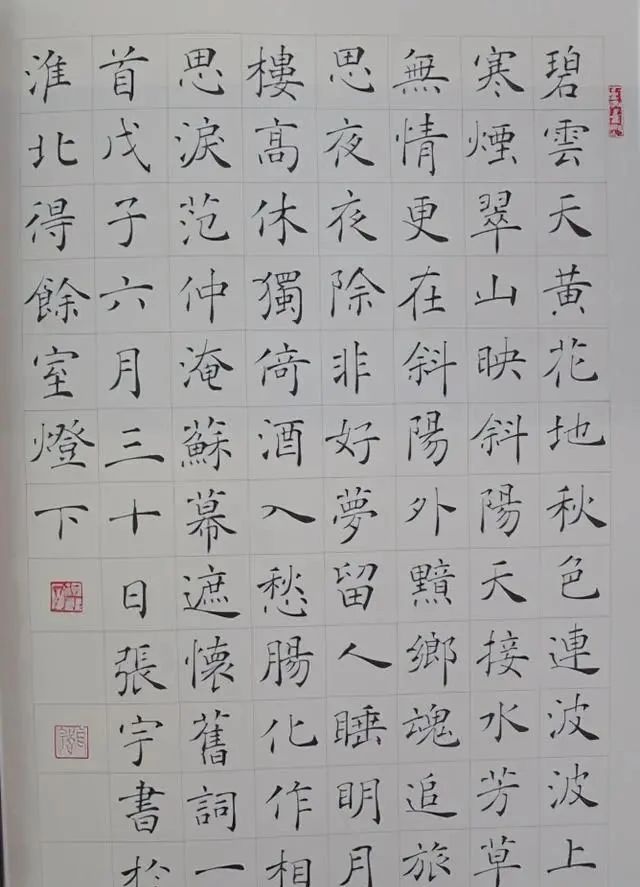 碧雲天黃花地秋色連波波上
寒煙翠山映斜陽天接水芳草
無情更在斜陽外黯鄉魂追旅
思夜夜除非好夢留人睡明月
樓高休獨倚酒入愁腸化作相
思淚范仲淹蘇幕遮懷舊詞一
首戊子六月三十日張宇書於
淮北得餘室燈下